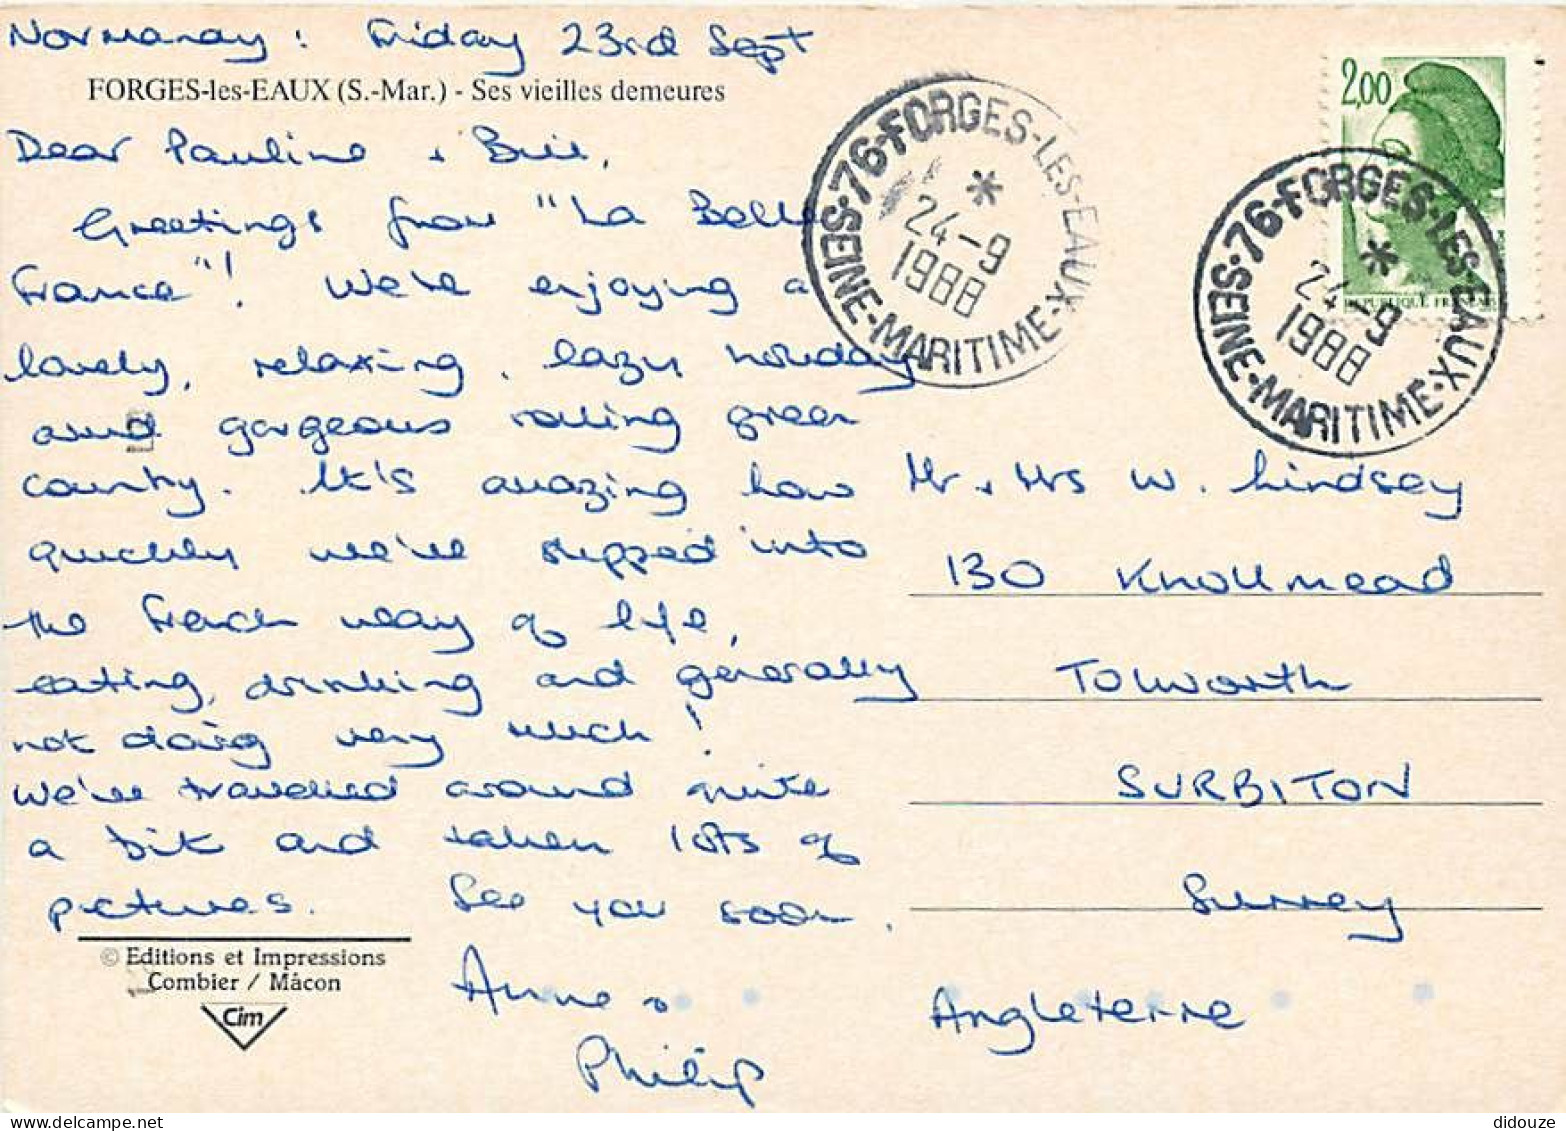 Normandy: Friday 23rd Sept
FORGES-les-EAUX (S.-Mar.) - Ses vieilles demeures
Dear Pauline & Bill,
Greetings from "La Belle
France"! We're enjoying a
lovely, relaxing, lazy holiday
amid gorgeous rolling green
country. It's amazing how
quickly we've slipped into
the French way of life,
eating, drinking and generally
not doing very much!
We've travelled around quite
a bit and taken lots of
pictures. See you soon.
Anne &
Philip
© Editions et Impressions
Combier / Mâcon
Cim
2,00
REPUBLIQUE FRANCAISE
76-FORGES-LES-EAUX
SEINE-MARITIME
*
24-9
1988
76-FORGES-LES-EAUX
SEINE-MARITIME
*
24-9
1988
Mr & Mrs W. Lindsey
130 Knollmead
Tolworth
SURBITON
Surrey
Angleterre
didouze